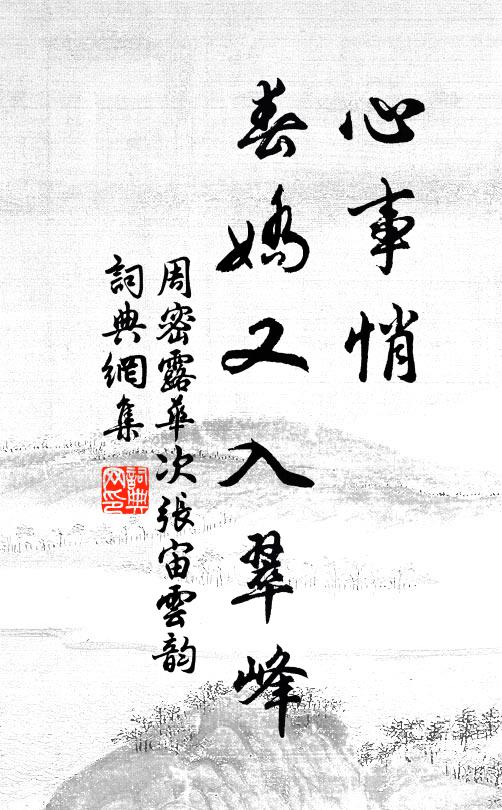 心事悄
春嬌又入翠峰
周密露華次張宙雲韵
詞典網集
詞典
网印